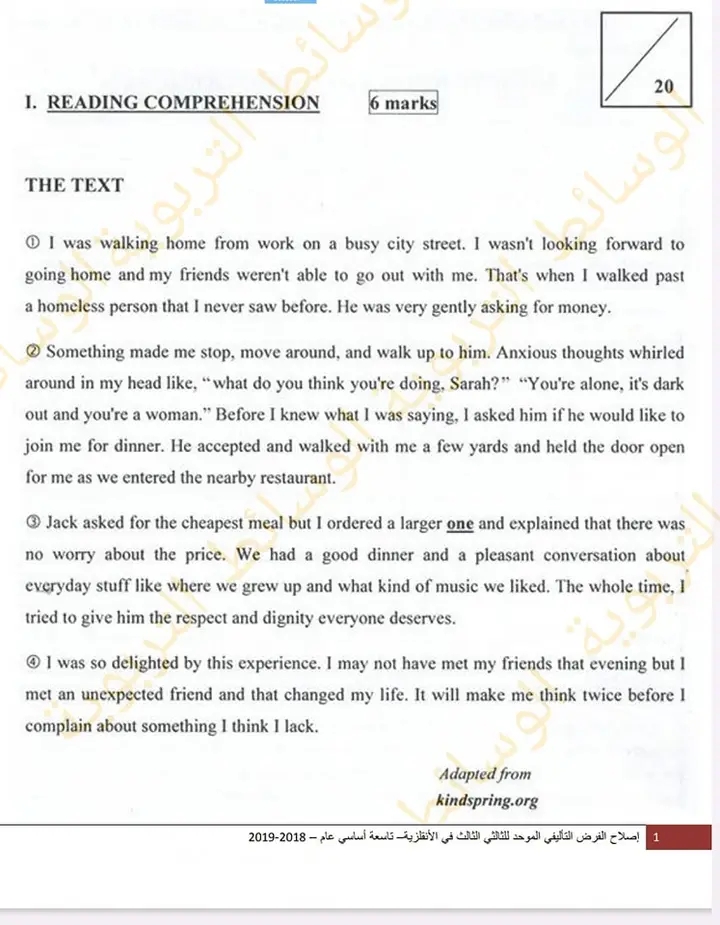 20
I. READING COMPREHENSION 6 marks
THE TEXT
① I was walking home from work on a busy city street. I wasn't looking forward to
going home and my friends weren't able to go out with me. That's when I walked past
a homeless person that I never saw before. He was very gently asking for money.
② Something made me stop, move around, and walk up to him. Anxious thoughts whirled
around in my head like, “what do you think you're doing, Sarah?” “You're alone, it's dark
out and you're a woman.” Before I knew what I was saying, I asked him if he would like to
join me for dinner. He accepted and walked with me a few yards and held the door open
for me as we entered the nearby restaurant.
③ Jack asked for the cheapest meal but I ordered a larger one and explained that there was
no worry about the price. We had a good dinner and a pleasant conversation about
everyday stuff like where we grew up and what kind of music we liked. The whole time, I
tried to give him the respect and dignity everyone deserves.
④ I was so delighted by this experience. I may not have met my friends that evening but I
met an unexpected friend and that changed my life. It will make me think twice before I
complain about something I think I lack.
Adapted from
kindspring.org
1 إصلاح الفرض التأليفي الموحد للثالثي الثالث في الأنقلزية– تاسعة أساسي عام – 2018-2019
الوسائط التربوية الوسائط التربوية الوسائط التربوية